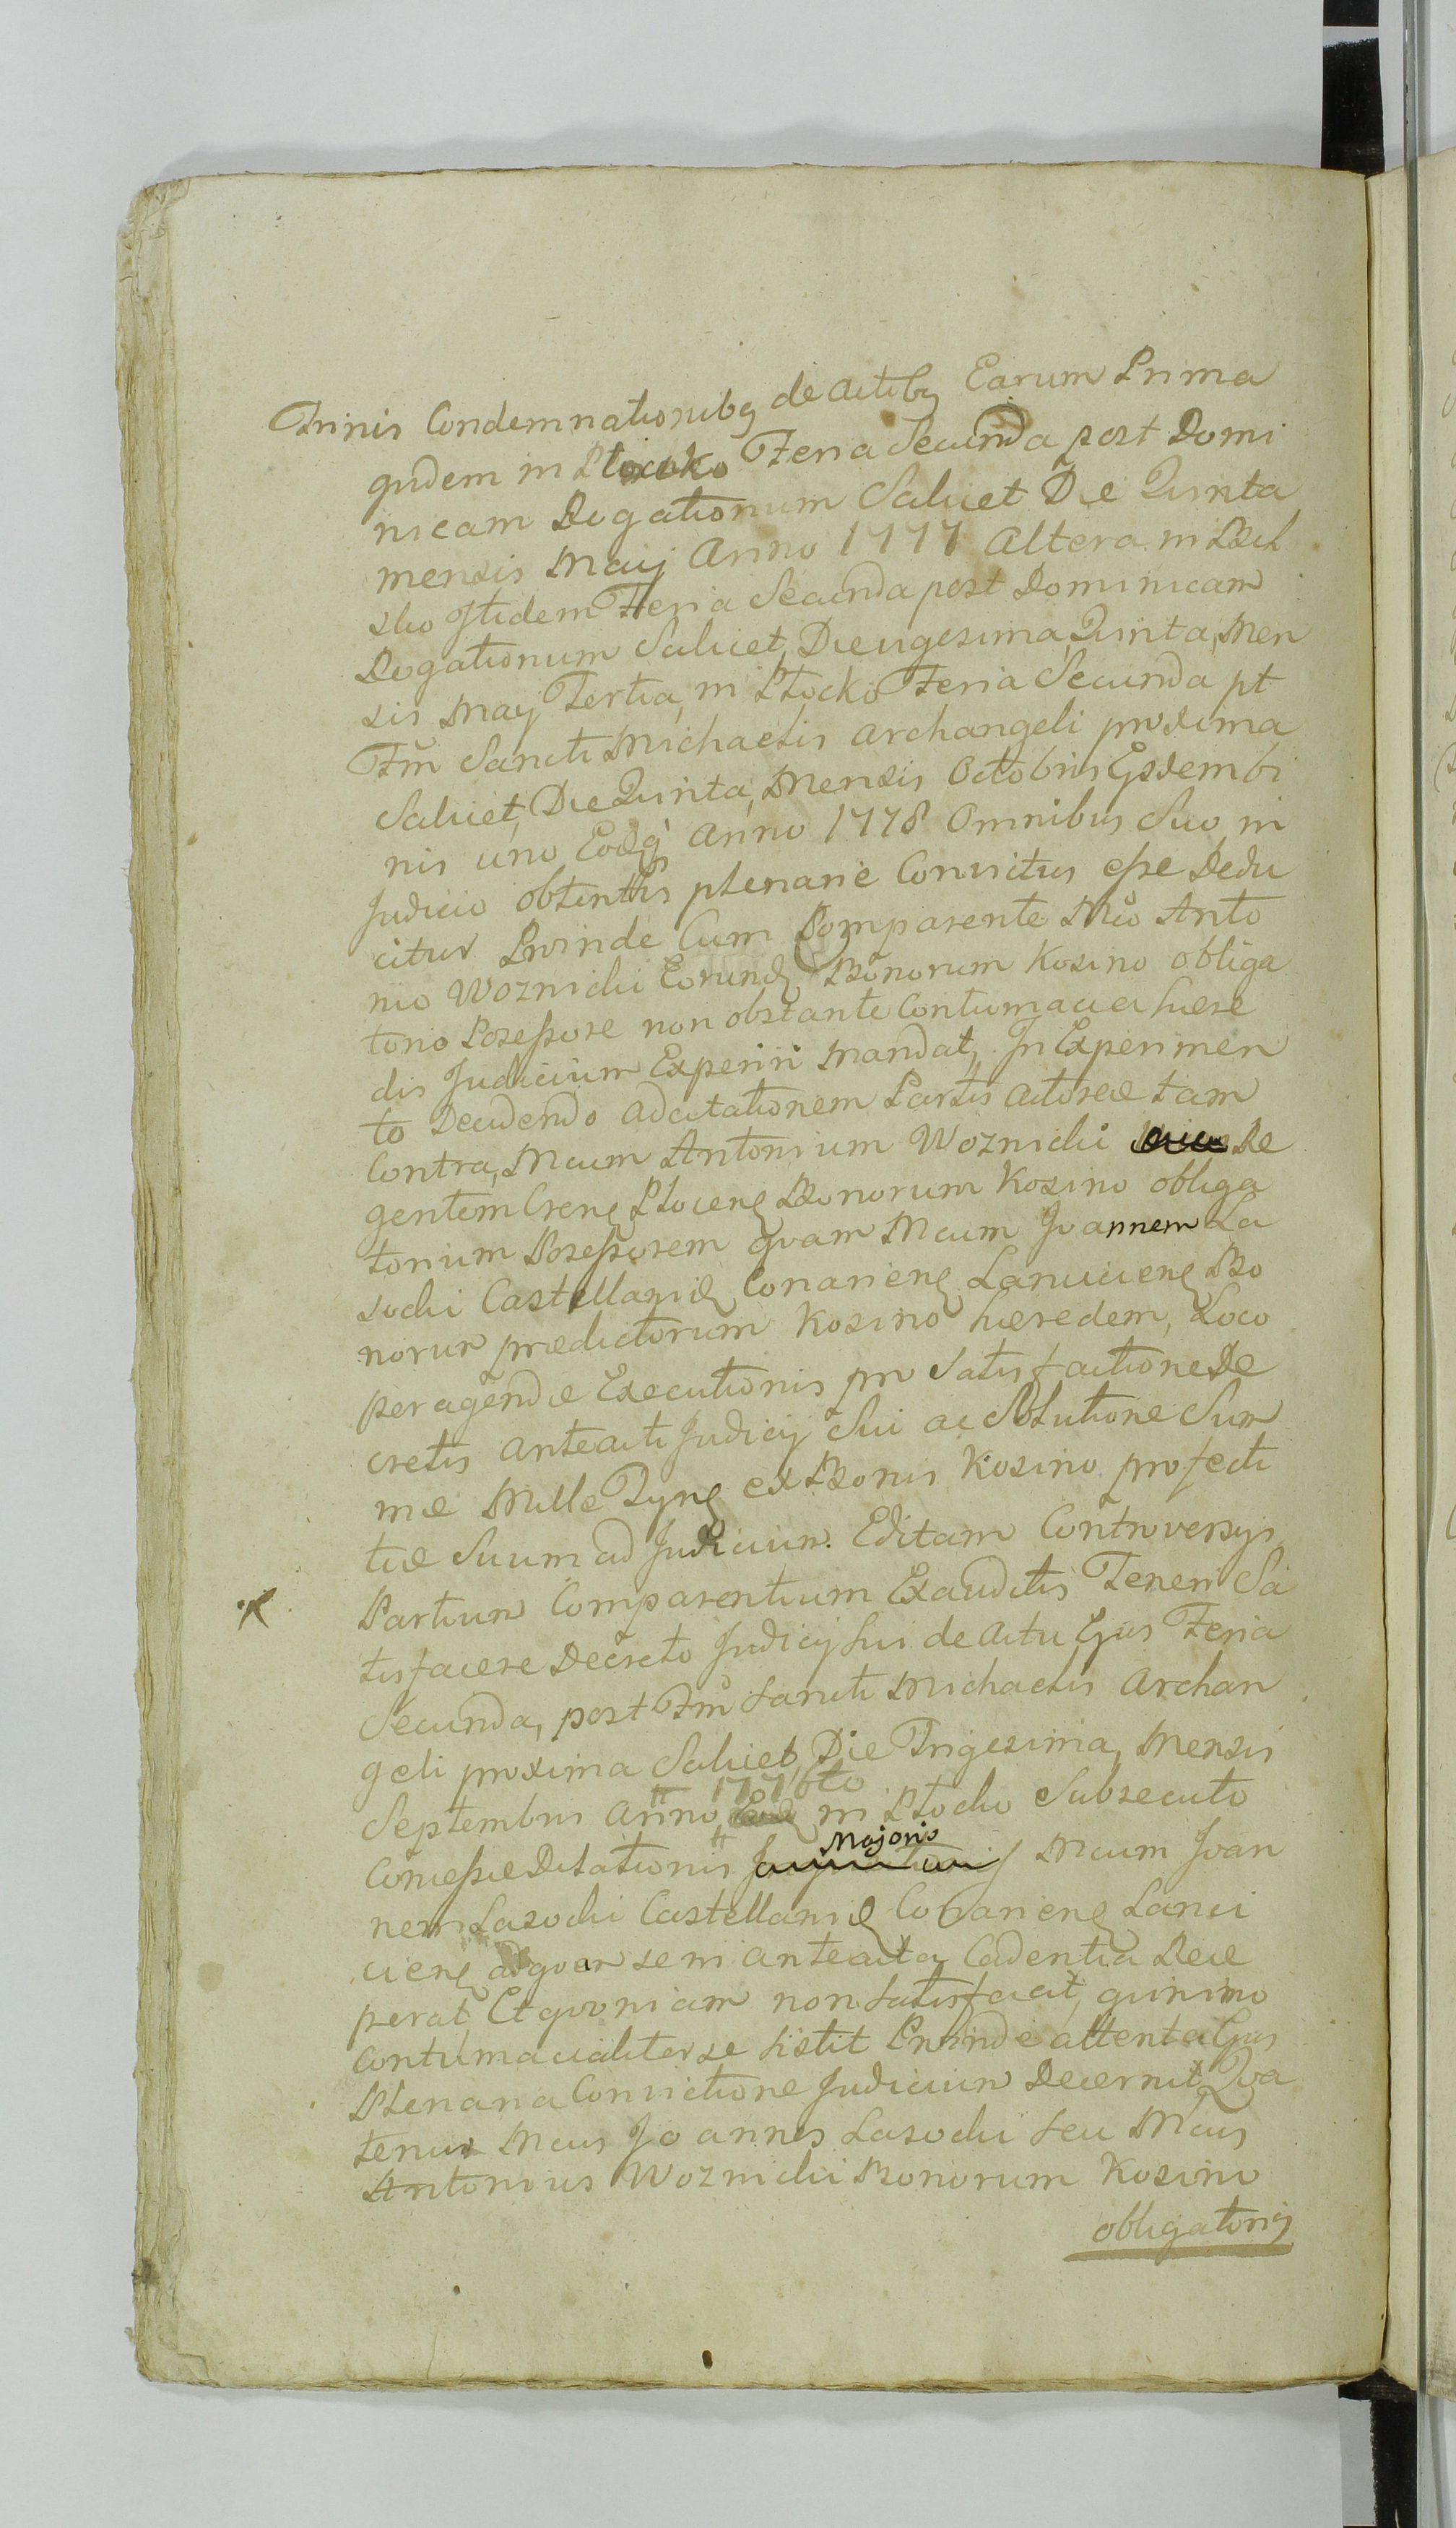 Trinis Condemnationibq de Actibq Earum Prima
quidem in Plocko Feria Secunda post Domi
nicam Rogationum Scilicet Die Quinta
mensis Maij Anno 1777 Altera in Biel
sko Itidem Feria Secunda post Dominicam
Rogationum Scilicet, Die vigesima Quinta, Men
sis Maij Tertia, in Plocko Feria Secunda pt
Ftm Sancti Michaelis Archangeli proxima
Scilicet, Die Quinta, Mensis Octobris Ejsdem bi
nis uno Eodq Anno 1778 Omnibus Suo in
Judicio obtentis plenarie Convictus esse Dedu
citur Proinde Cum Comparente Mco Anto
nio Woznicki Eorundq Bonorum Kosino obliga
torio Possessore non obstante Contumacia hære
dis Judicium Experiri mandat, In Experimen
to Decidendo adcitationem Partis Actoreæ tam
Contra, Mcum Antonium Woznicki Re
gentem Crenq Plocenq Bonorum Kosino obliga
torium Possessorem quam Mcum Joannem La
socki Castellanidq Conarienq Lancicienq Bo
norum prædictorum Kosino hæredem, Loco
peragendæ Executionis pro Satisfactione De
cretis anteacti Judicij Sui ac Solutione Sum
mæ Mille Tynq ex Bonis Kosino profecti
tiæ Suum ad Judicium Editam Controversijs
Partium Comparentium Exauditis Teneri Sa
tisfacere Decreto Judicij Sui de Actu Ejus Feria
Secunda, post Ftm Sancti Michaelis Archan
geli proxima Scilicet, Die Trigesima, Mensis
1776to
Septembris Anno in Plocko Subsecuto
Majoris
Concessæ Dilationis Mcum Joan
nem Lasocki Castellanidq Conarienq Lanci
cienq adquær se ni anteacta Cadentia Rece
perat, Et quoniam non satisfecit, quinimo
Contumacialiter se sistit Proinde attenta Ejus
Plenaria Convictione Judicium Decernit Qva
tenus Mcus Joannes Lasocki seu Mcus
Antonius Woznicki Bonorum Kosino
obligatorig